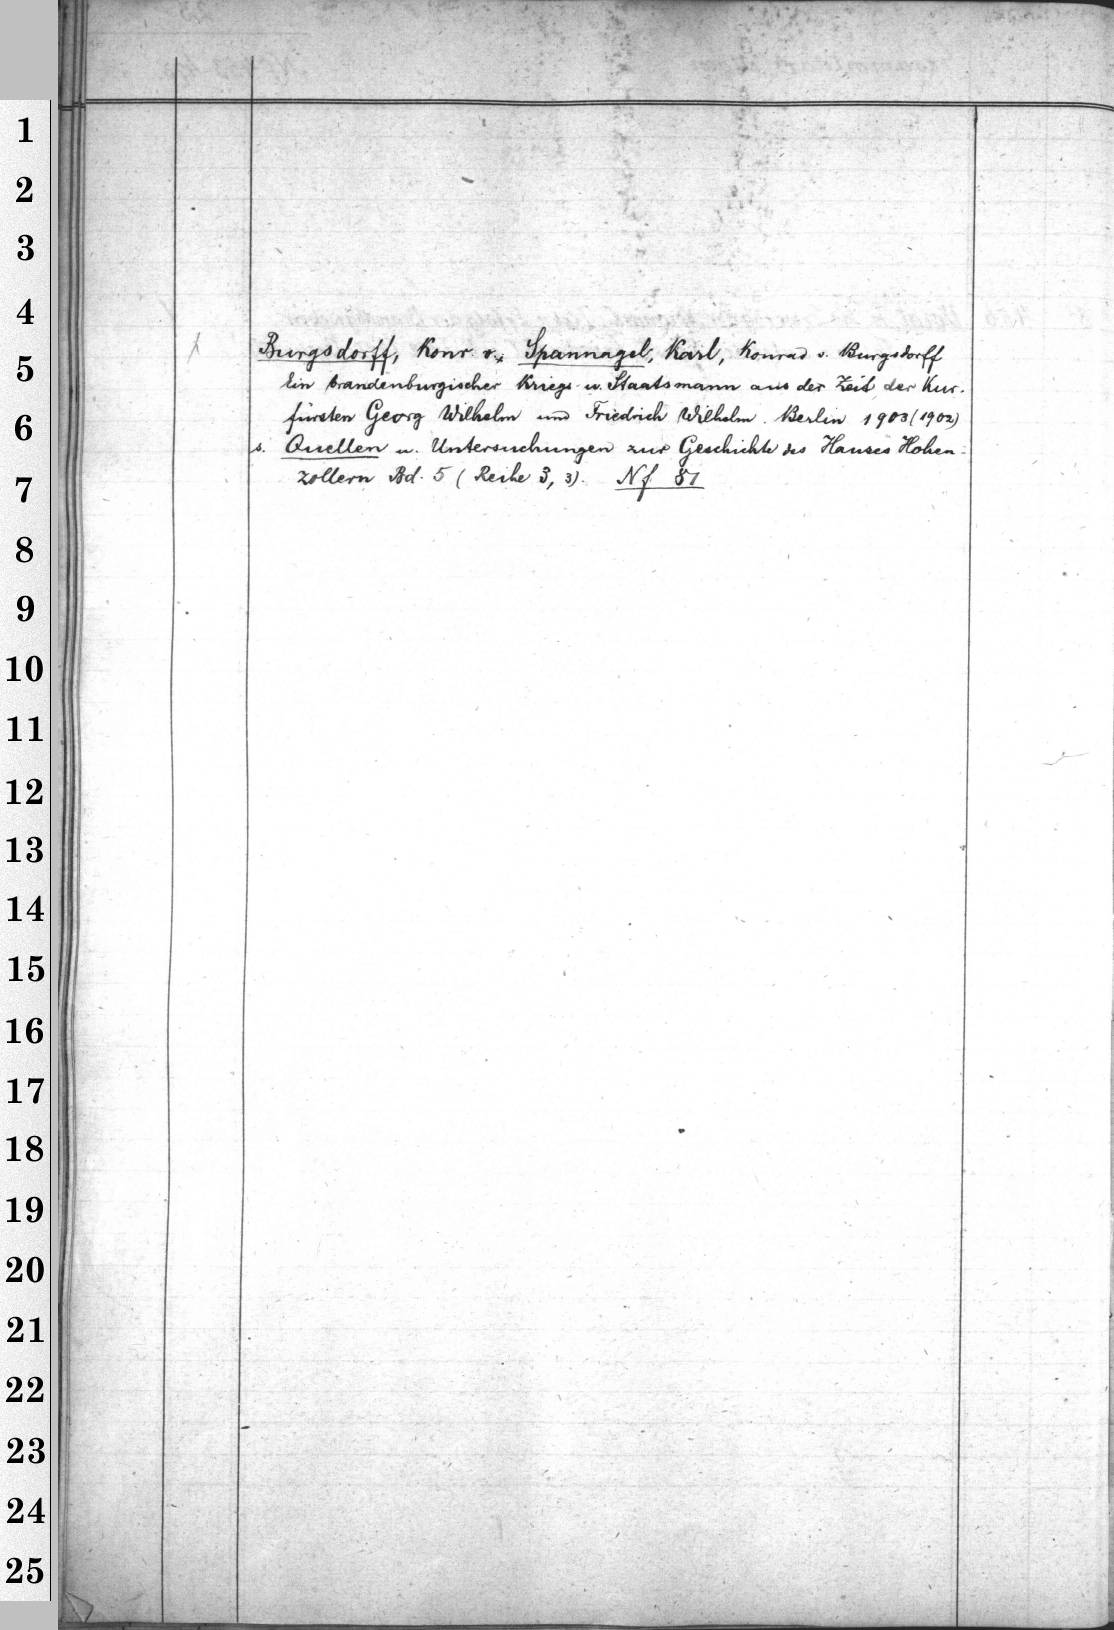 1
2
3
4
5
6
7
8
9
10
11
12
13
14
15
16
17
18
19
20
21
22
23
24
25
Burgsdorff, Konr. v., Spannagel, Karl, Konrad v. Burgsdorff
Ein brandenburgischer Kriegs- u. Staatsmann aus der Zeit der Kur-
fürsten Georg Wilhelm und Friedrich Wilhelm. Berlin 1903 (1902)
s. Quellen u. Untersuchungen zur Geschichte des Hauses Hohen-
zollern Bd. 5 (Reihe 3, 3). Nf 81